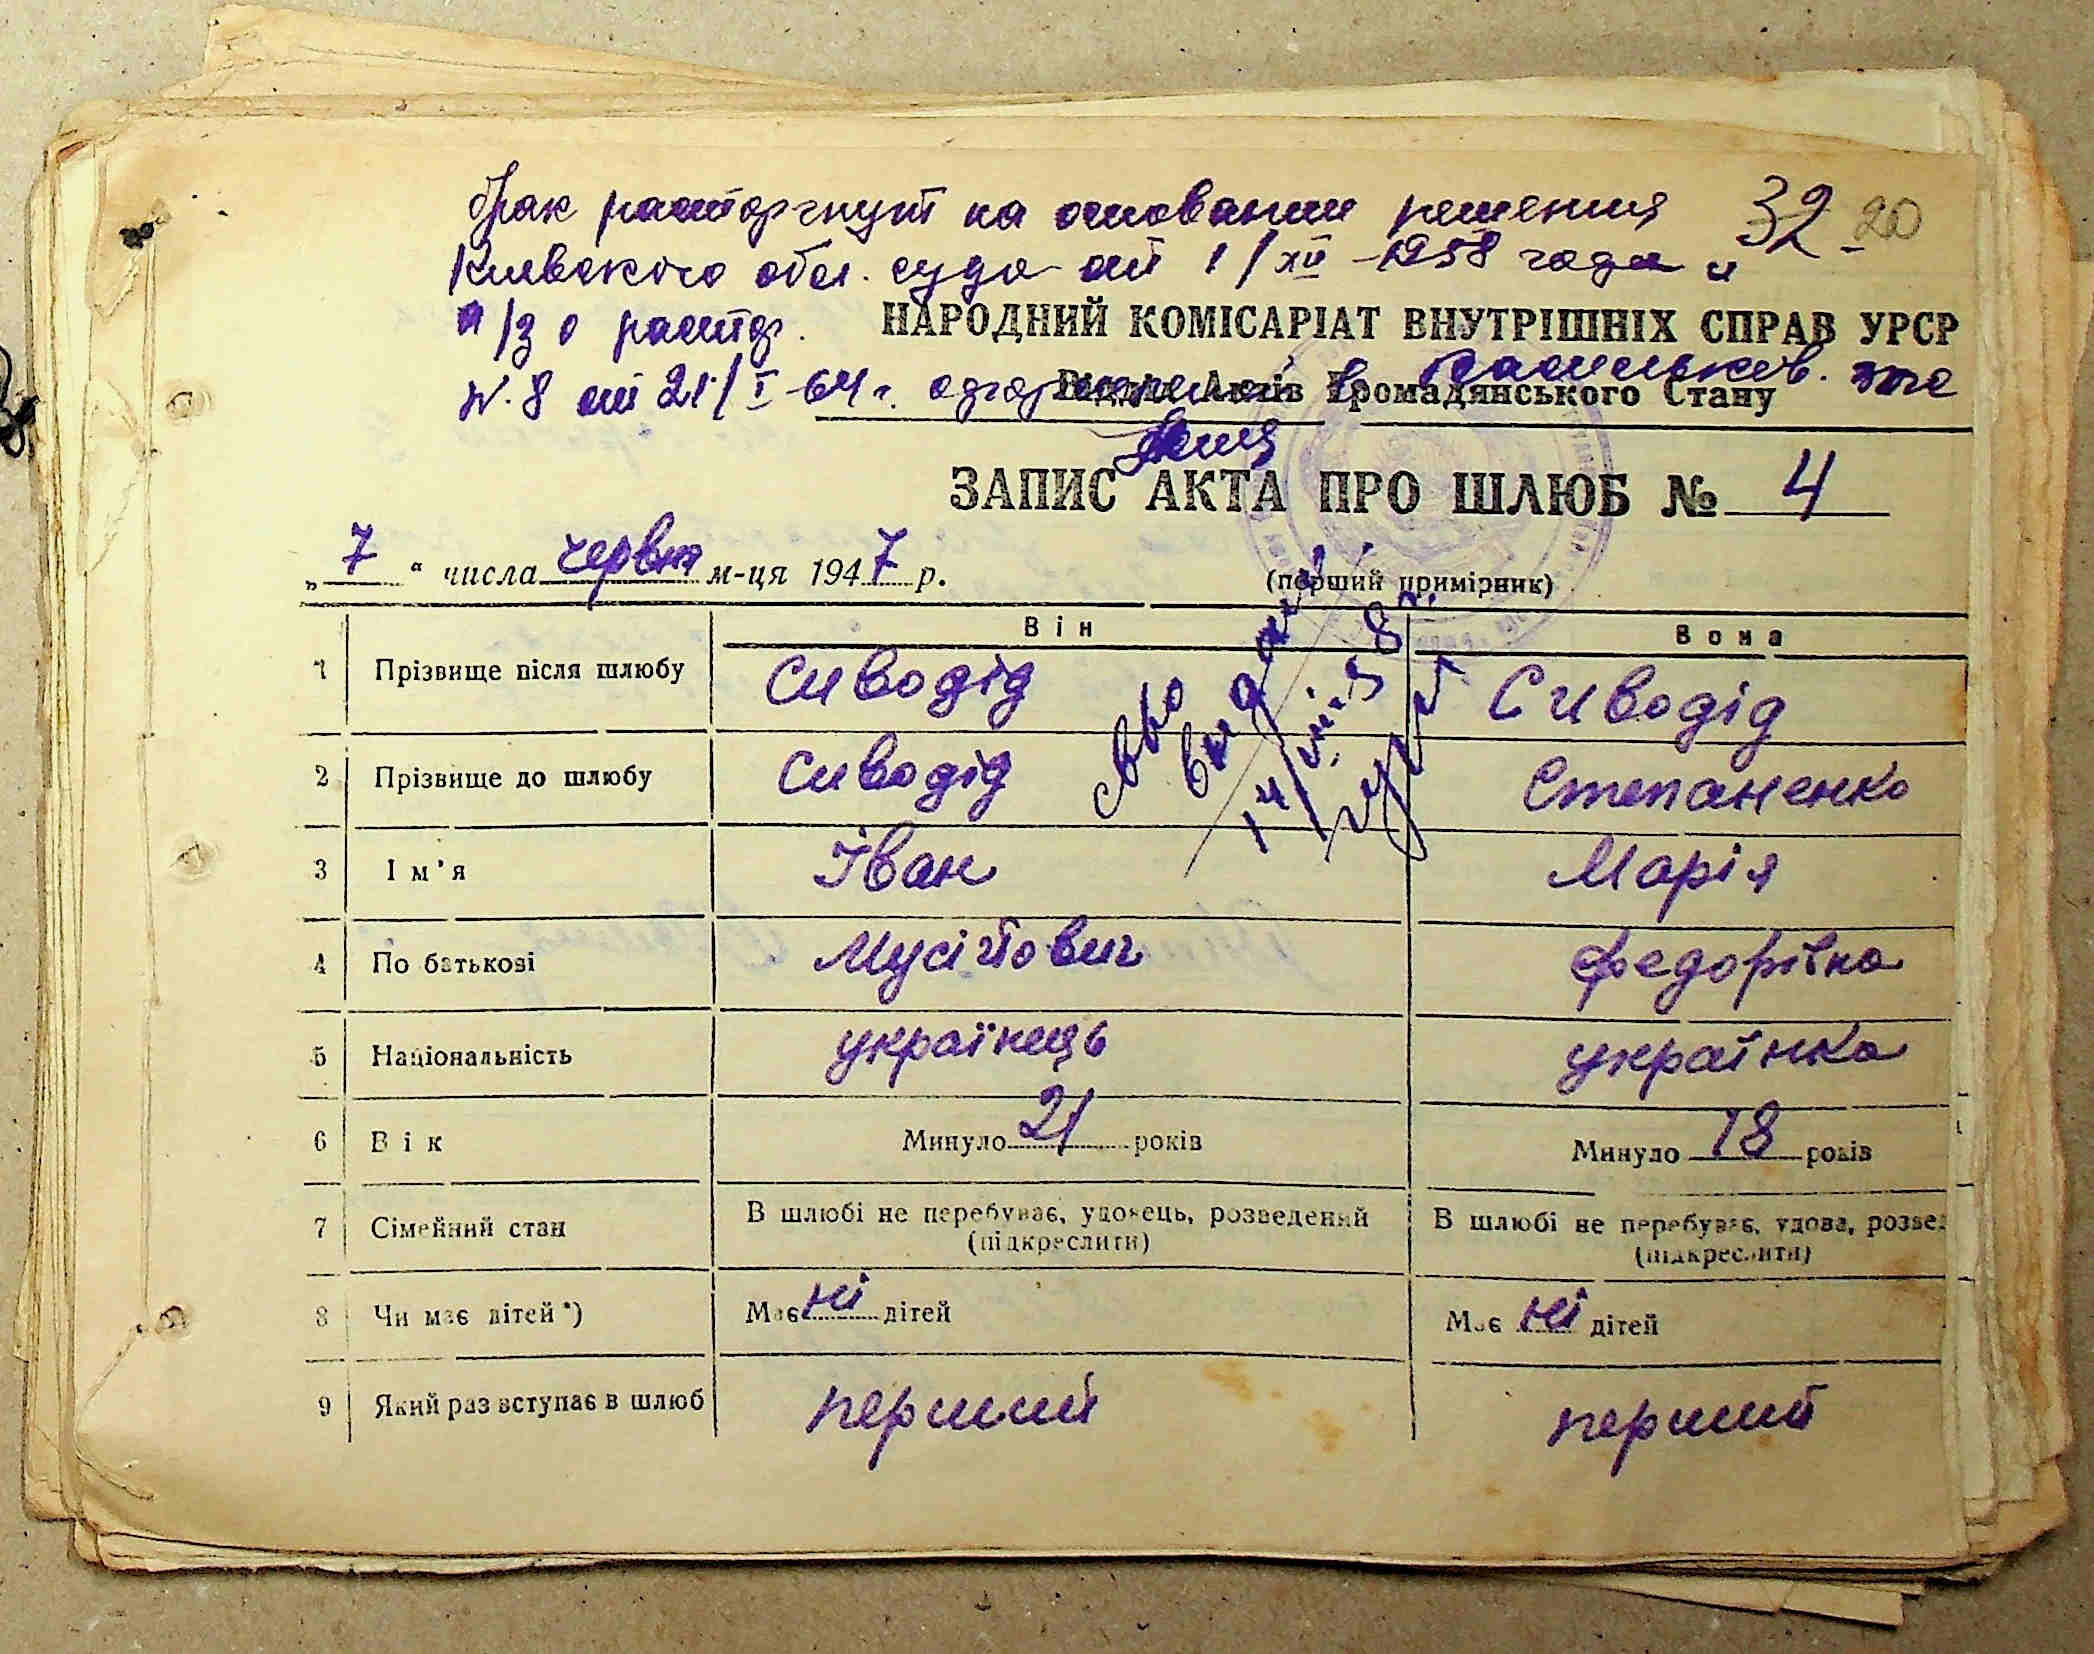 брак расторгнут на основании решения 32 20
Киевского обл. суда от 1/XII-1958 года и
а/з о растор. НАРОДНИЙ КОМІСАРІАТ ВНУТРІШНІХ СПРАВ УРСР
N. 8 от 21/I-64 г. в Васильков.
Відділ Актів Громадянського Стану
ЗАПИС АКТА ПРО ШЛЮБ № 4
„ 7 “ числа червня м-ця 1947 р.
(перший примірник)
Він Вона
1 Прізвище після шлюбу Сиводід Сиводід
2 Прізвище до шлюбу Сиводід Степаненко
св-во
видан
14/VIII-58 г.
3 Ім'я Іван Марія
4 По батькові Мусійович Федорівна
5 Національність українець українка
6 Вік Минуло 21 років Минуло 18 років
7 Сімейний стан В шлюбі не перебуває, удовець, розведений В шлюбі не перебуває, удова, розвед
(підкреслити) (підкреслити)
8 Чи має дітей *) Має ні дітей Має ні дітей
9 Який раз вступає в шлюб перший перший